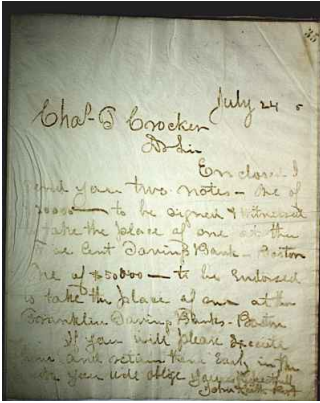 35
July 24
Chas. T Crocker
Dr Sir
Enclosed I
send you two notes - One of
to be signed & witnessed
to take the place of one at the
Five Cent Savings Bank - Boston
One of $50000 - to be Endorsed
to take the place of one at the
Franklin Savings Bank - Boston
If you will please Execute
and return them Early in the
you will oblige Yours